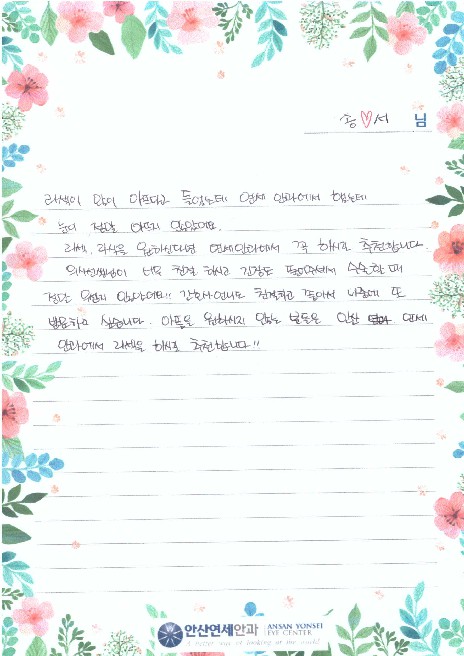 송♡서 님
라섹이 많이 아프다고 들었는데 연세 안과에서 했는데
눈이 정말 아프지 않았어요.
라섹, 라식을 원하신다면 연세안과에서 꼭 하시길 추천합니다.
의사선생님이 너무 친절 하시고 긴장은 풀어주셔서 수술할 때
정말 아프지 않았어요!! 간호사언니도 친절하고 좋아서 나중에 또
방문하고 싶습니다. 아픔을 원하시지 않는 분들은 안산 연세
안과에서 라섹을 하시길 추천합니다!!
안산연세안과 ANSAN YONSEI EYE CENTER
A better way of looking at the world